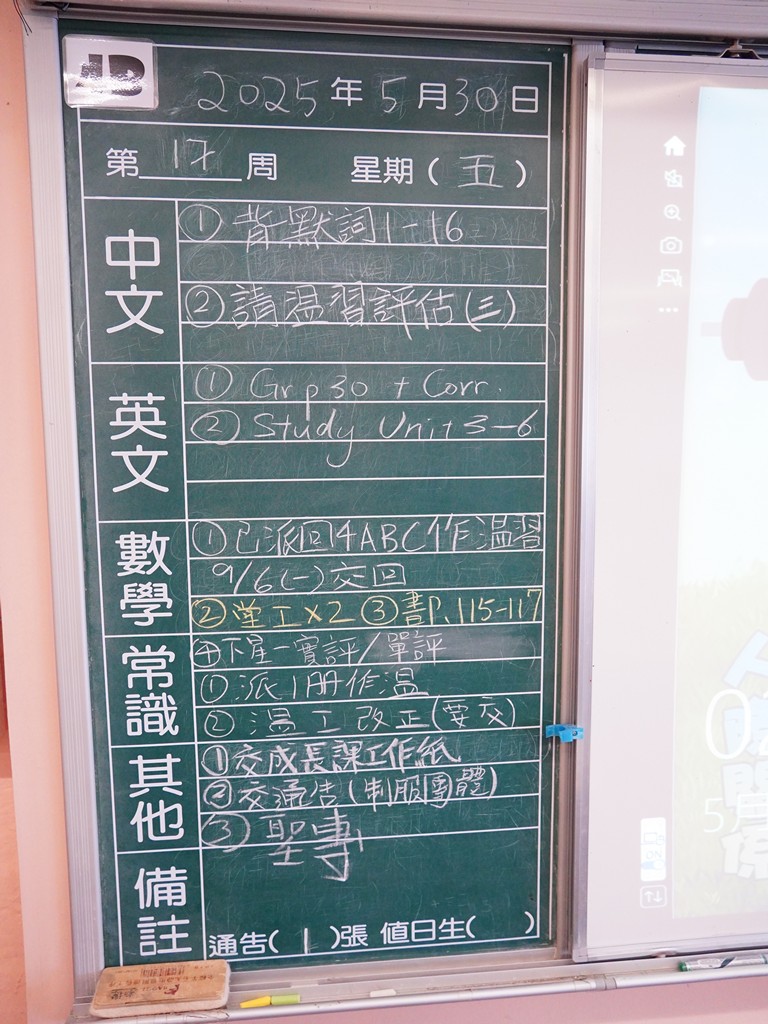 4D
2025年5月30日
第17周 星期(五)
中文
①背默詞1-16
②請温習評估(三)
英文
① Gr p30 + Corr.
② Study Unit 3-6
數學
①已派回4ABC作温習
9/6(一)交回
②堂工x2 ③書P.115-117
④下星一實評/單評
常識
①派1冊作温
②温工改正(要交)
其他
①交成長課工作紙
②交通告(制服團體)
③聖專
備註
通告(1)張 值日生( )
5月
係